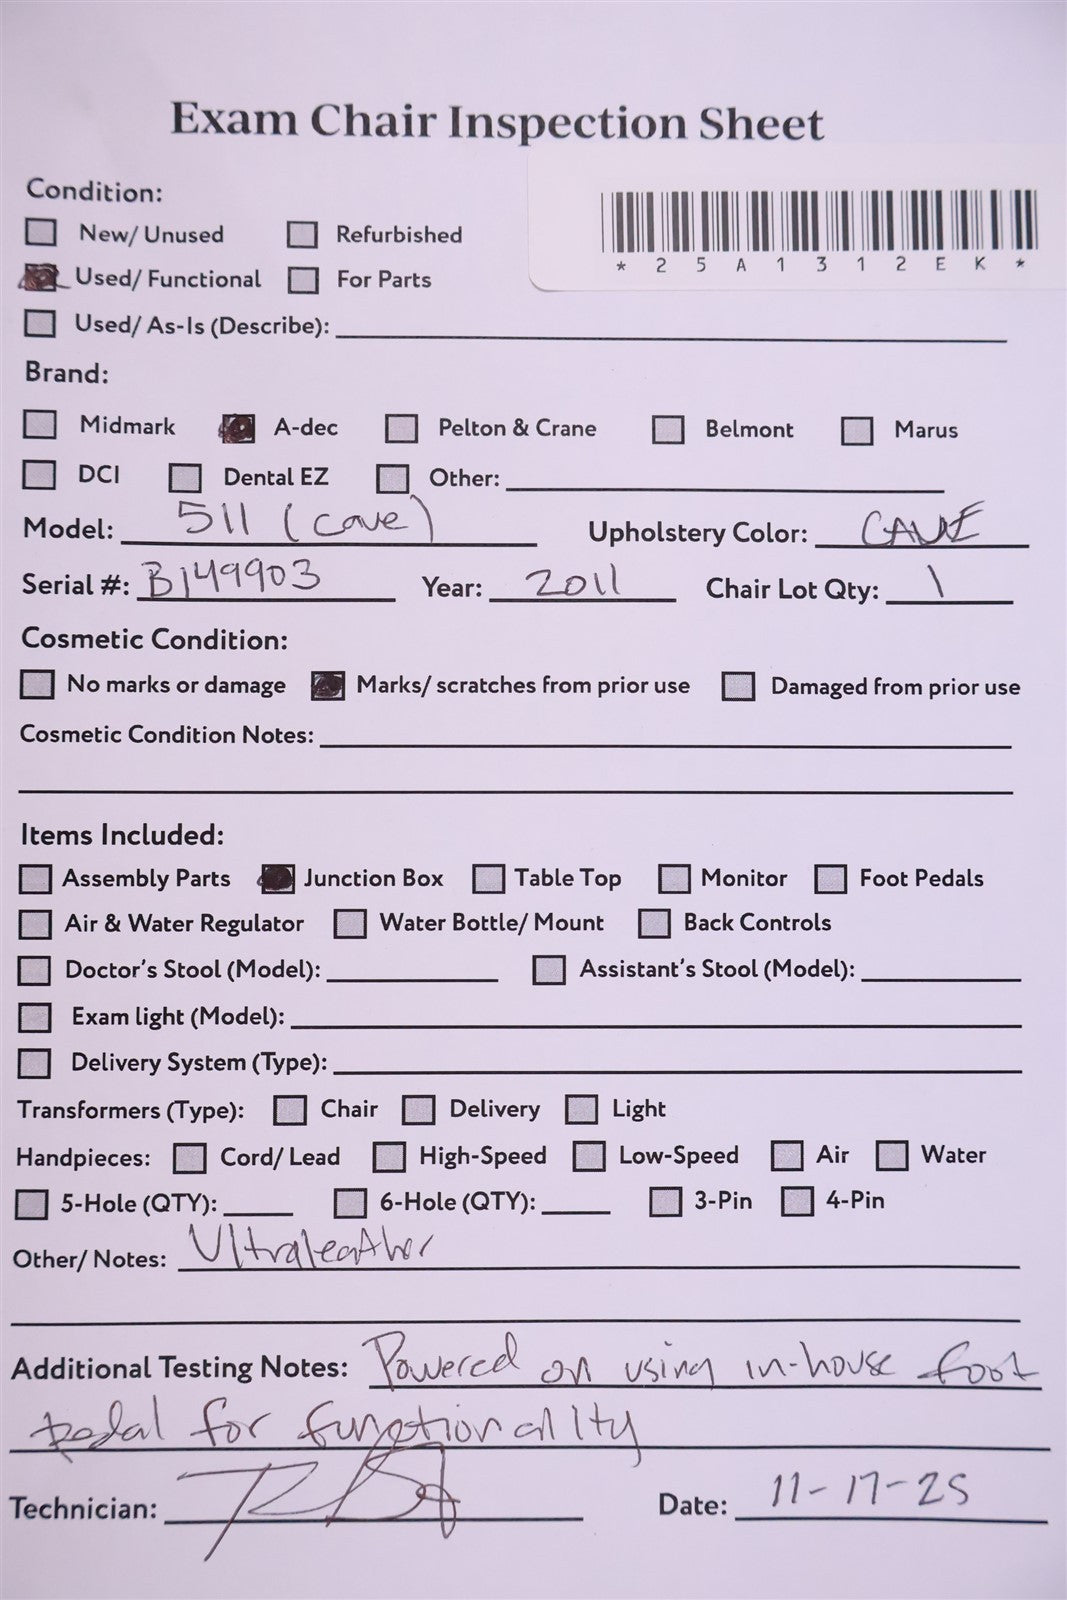 Exam Chair Inspection Sheet
Condition:
New/ Unused Refurbished
* 2 5 A 1 3 1 2 E K *
Used/ Functional For Parts
Used/ As-Is (Describe):
Brand:
Midmark A-dec Pelton & Crane Belmont Marus
DCI Dental EZ Other:
Model: 511 (Cave) Upholstery Color: CAVE
Serial #: B149903 Year: 2011 Chair Lot Qty: 1
Cosmetic Condition:
No marks or damage Marks/ scratches from prior use Damaged from prior use
Cosmetic Condition Notes:
Items Included:
Assembly Parts Junction Box Table Top Monitor Foot Pedals
Air & Water Regulator Water Bottle/ Mount Back Controls
Doctor's Stool (Model): Assistant's Stool (Model):
Exam light (Model):
Delivery System (Type):
Transformers (Type): Chair Delivery Light
Handpieces: Cord/ Lead High-Speed Low-Speed Air Water
5-Hole (QTY): 6-Hole (QTY): 3-Pin 4-Pin
Other/ Notes: Ultraleather
Additional Testing Notes: Powered on using in-house foot
pedal for functionality
Technician: Date: 11-17-25